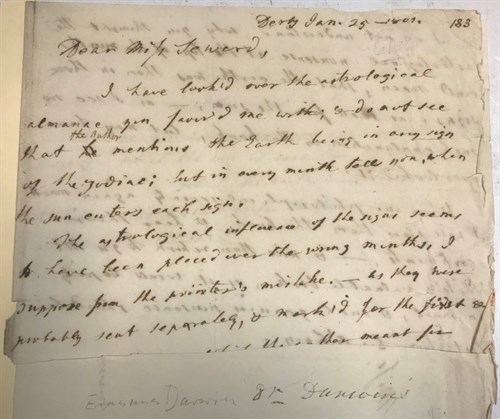 Derby Jan. 25 – 1801. 183
Dear Miss Seward,
I have look'd over the astrological
almanac you favor'd me with, & do not see
the author
that he mentions the Earth being in any sign
of the zodiac; but in every month tells you, when
the sun enters each sign.
The astrological influence of the signs seems
to have been placed over the wrong months, I
suppose from the printer's mistake. – as they were
probably sent separately, & mark'd for the first &c
the author meant for
Erasmus Darwin Dr Darwin's